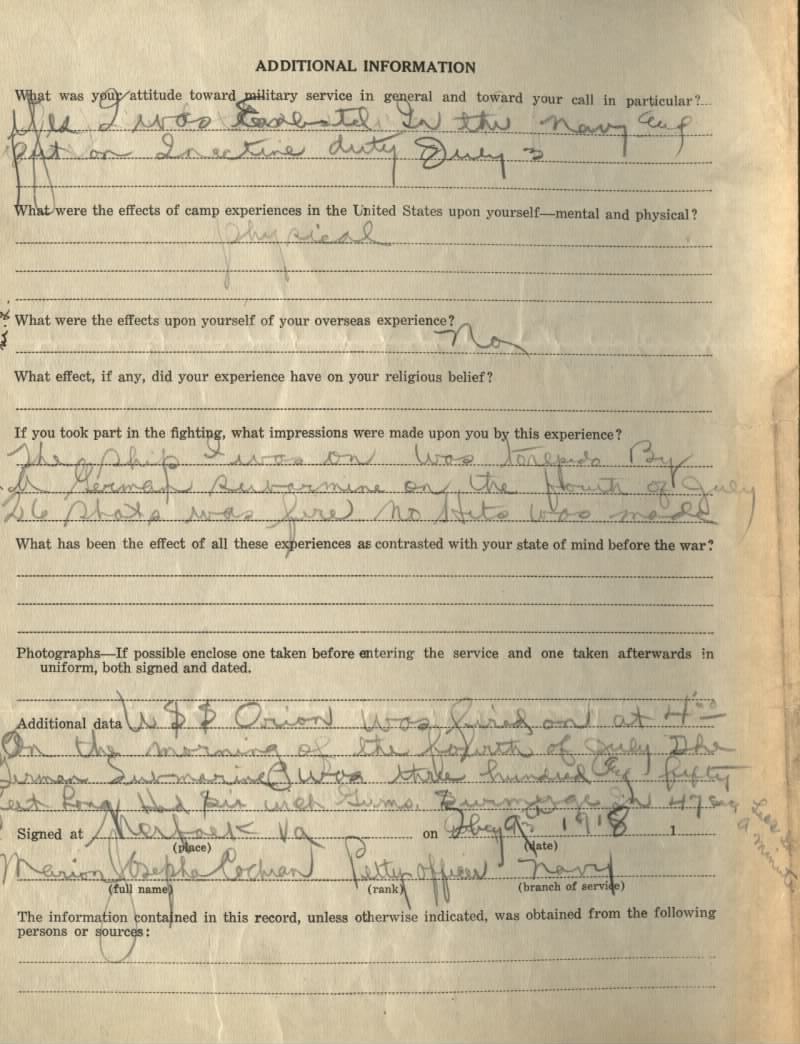 ADDITIONAL INFORMATION
What was your attitude toward military service in general and toward your call in particular?
Yes I was In the Navy
put on duty July
What were the effects of camp experiences in the United States upon yourself—mental and physical?
physical
What were the effects upon yourself of your overseas experience?
No
What effect, if any, did your experience have on your religious belief?
If you took part in the fighting, what impressions were made upon you by this experience?
The Ship I was on was torepido By
German on the fourth of July
26 shots was fire no Hits was made
What has been the effect of all these experiences as contrasted with your state of mind before the war?
Photographs—If possible enclose one taken before entering the service and one taken afterwards in
uniform, both signed and dated.
Additional data U S S Orion was fired on at 4
On the morning of the fourth of July The
German Submarine was three hundred fifty
long inch Guns. in 47
Signed at Va (place) on 1918 1 (date)
Marion Cochran Petty officer Navy
(full name) (rank) (branch of service)
The information contained in this record, unless otherwise indicated, was obtained from the following
persons or sources: